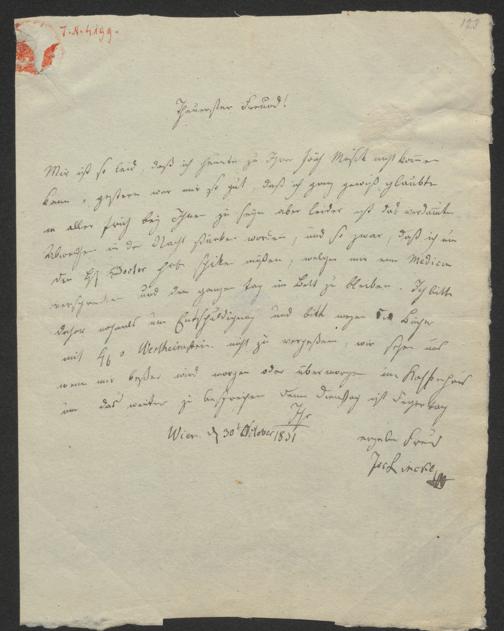 I. N. 4199.
123
Theuerster Freund!
Mir ist so leid, daß ich heute zu Ihrer nicht kommen
kann, gestern war mir so gut, daß ich ganz gewiß glaubte
in aller früh bey Ihnen zu seyn aber leider ist das
in der Nacht stärker worden, und so zwar, daß ich um
den Doctor habe schiken müßen, welcher mir eine Medicin
verschrieben und den ganzen tag im Bett zu bleiben. Ich bitte
daher um Entschuldigung und bitte wegen
mit Wertheimstein nicht zu vergeßen, wir sehen uns
wenn mir beßer wird morgen oder übermorgen im Kaffeehaus
um das weitere zu besprechen denn Dienstag ist
Ihr
Wien 30t October 1831
Freund
Jos Lincke